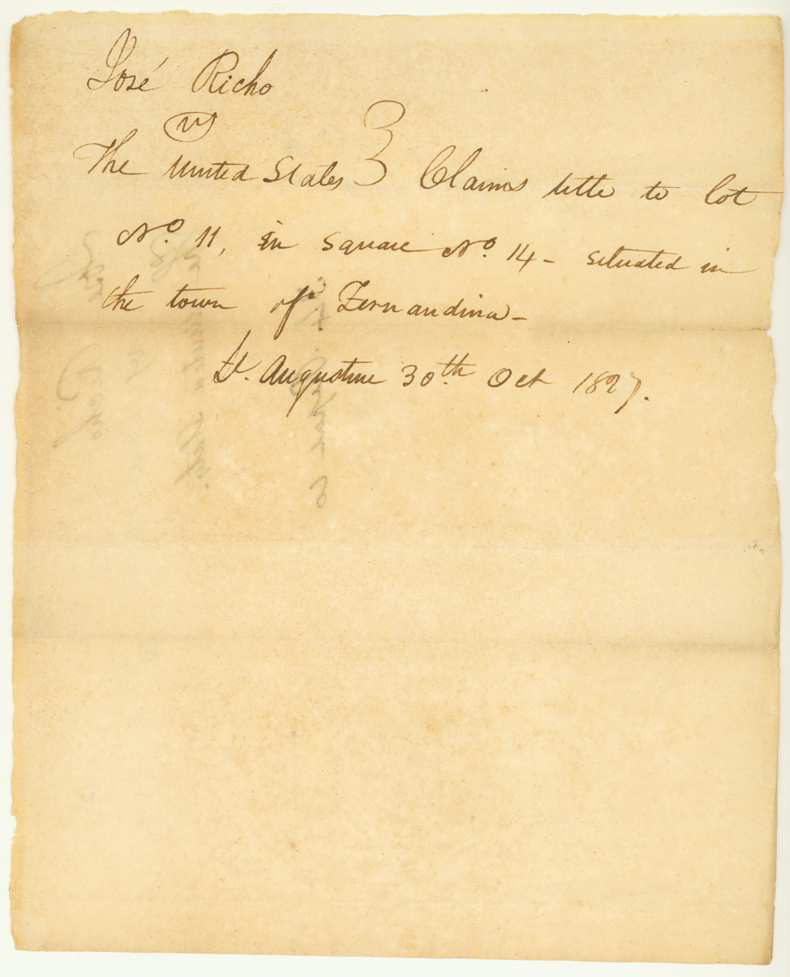 José Richo
vs
The United States } Claims title to lot
No. 11, in square No. 14 - situated in
the town of Fernandina -
St. Augustine 30th Oct 1827.